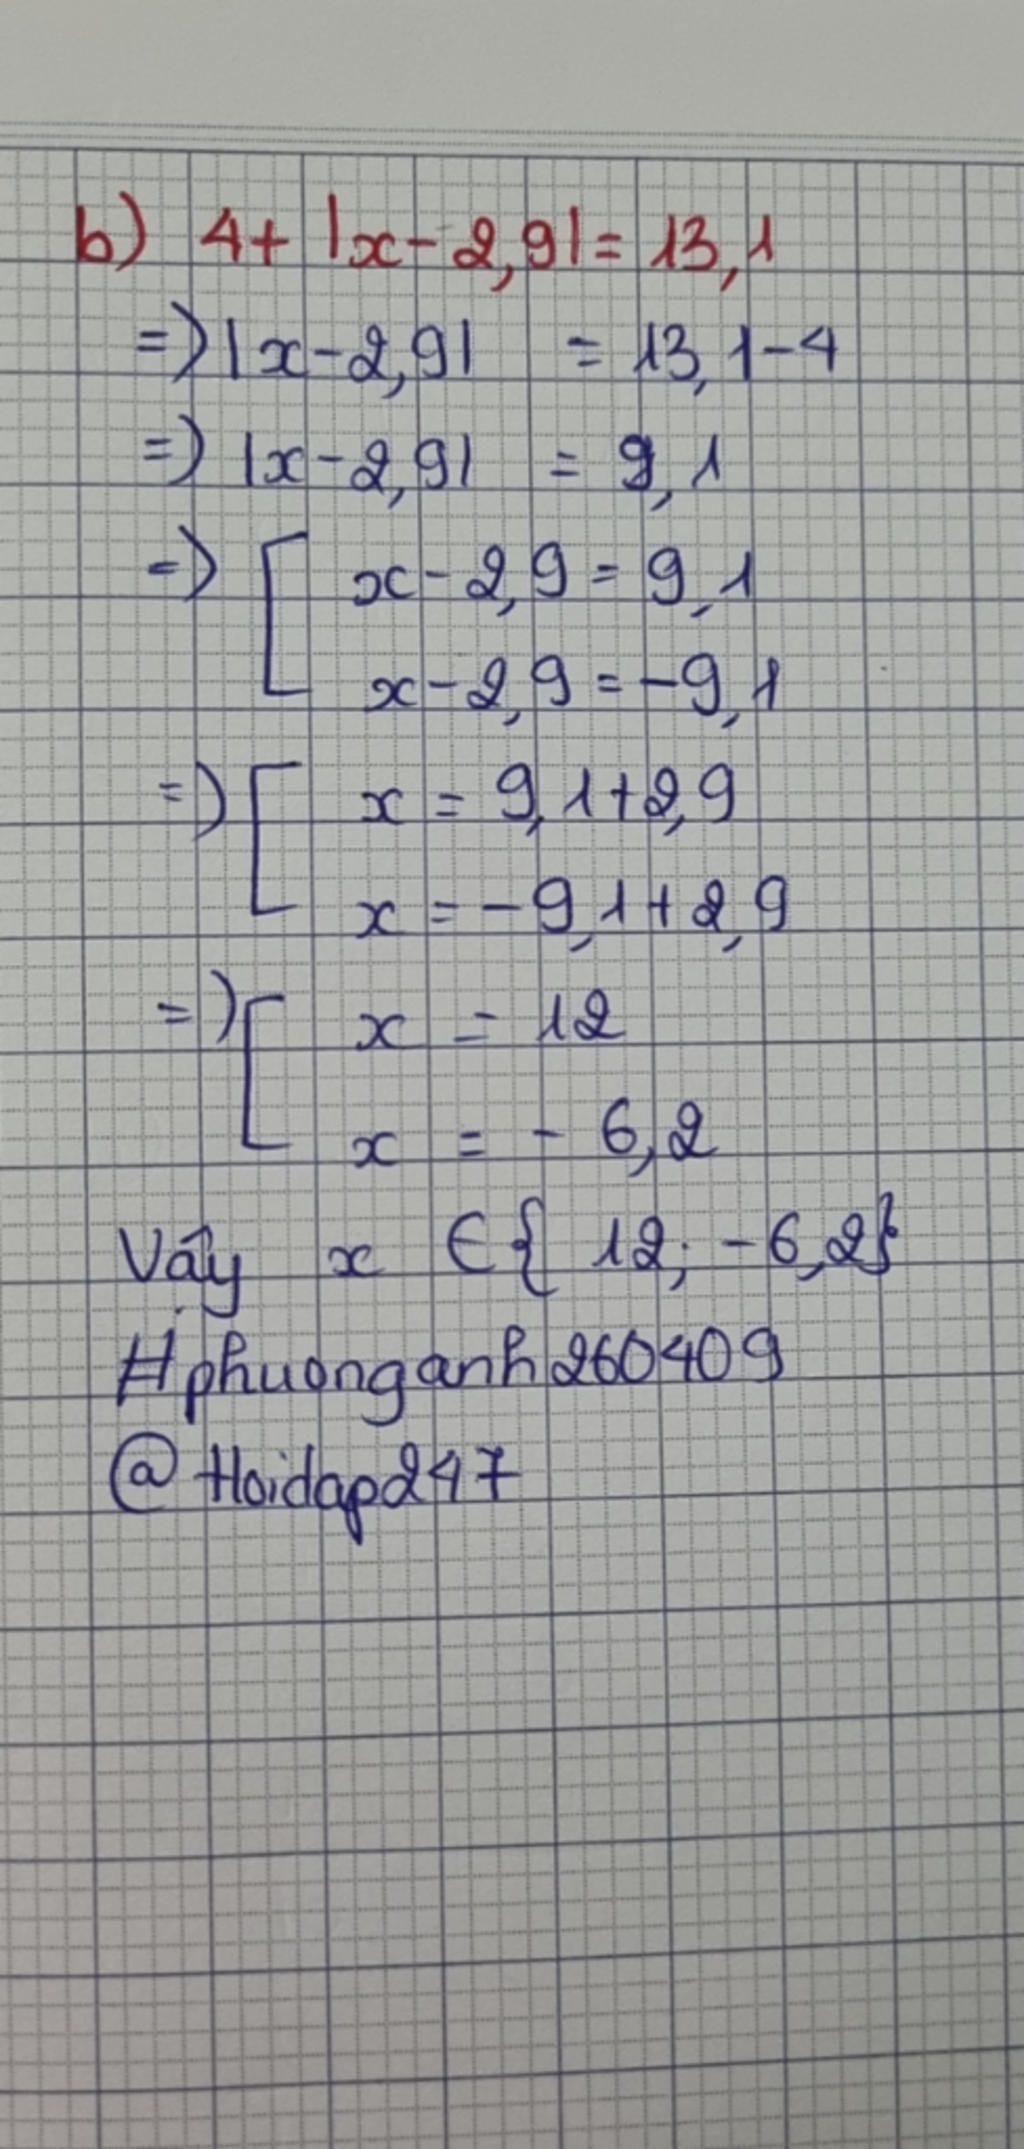 b) 4+ |x-2,9|= 13,1
=> |x-2,9| = 13,1-4
=> |x-2,9| = 9,1
=> [ x-2,9=9,1
x-2,9=-9,1
=> [ x = 9,1+2,9
x = -9,1+2,9
=> [ x = 12
x = - 6,2
Vậy x ∈ { 12; -6,2}
#phuonganh260409
@Hoidap247